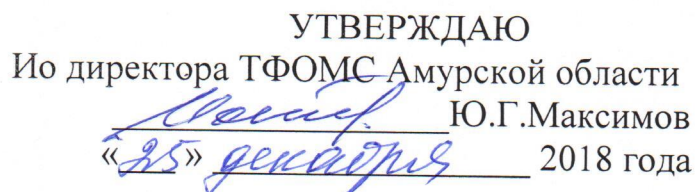 УТВЕРЖДАЮ
Ио директора ТФОМС Амурской области
Ю.Г.Максимов
«25» декабря 2018 года